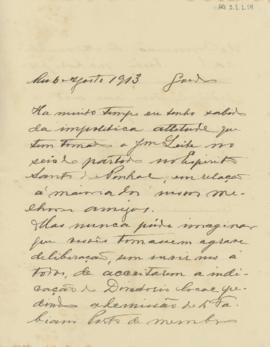 Rio 6 Agosto 1913
Ha muito tempo eu tenho sabido
da impolitica attitude que
tem tomado o Jm Leite no
seio do partido no Espirito
Santo do Pinhal, em relação
á maioria dos nossos me-
lhores amigos.
Mas nunca pude imaginar
que vocês tomassem a grave
deliberação, sem ouvirem a
todos, de acceitarem a indi-
cação do Directorio local pe-
dindo a demissão do
de membro